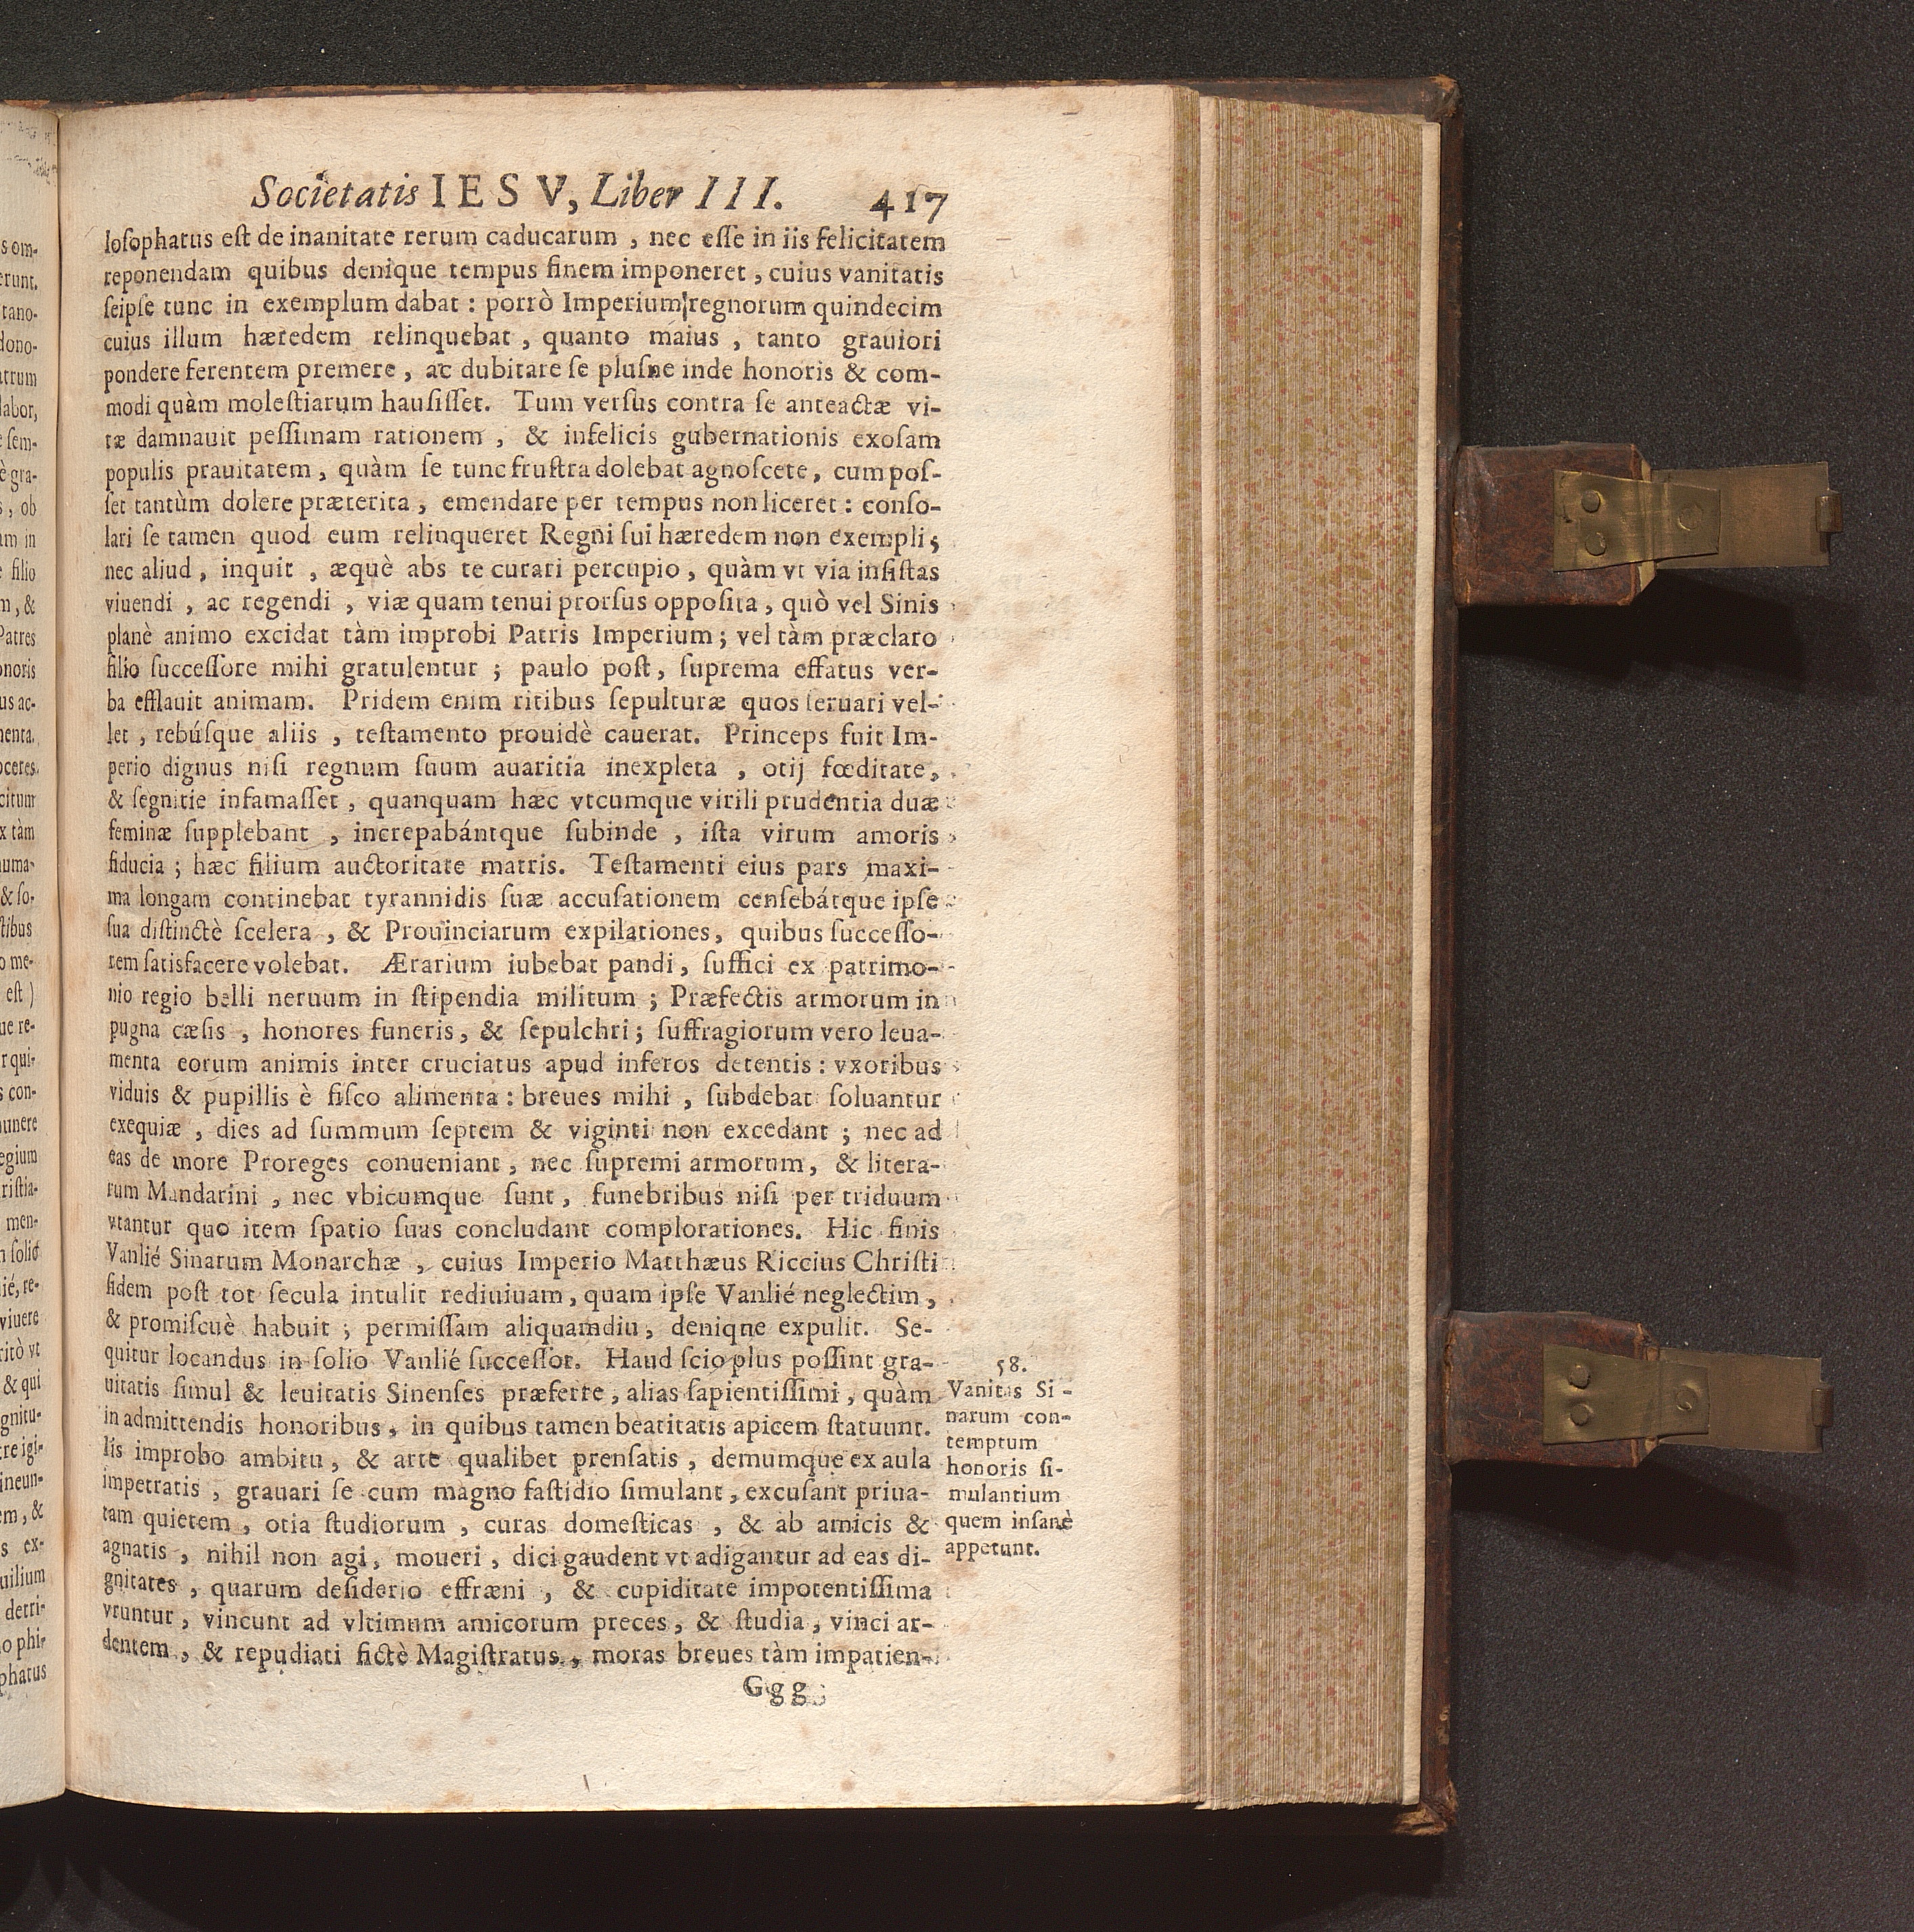 Societatis IESV, Liber III. 417
losophatus est de inanitate rerum caducarum, nec esse in iis felicitatem
reponendam quibus denique tempus finem imponeret, cuius vanitatis
seipse tunc in exemplum dabat: porrò Imperium regnorum quindecim
cuius illum hæredem relinquebat, quanto maius, tanto grauiori
pondere ferentem premere, ac dubitare se plusne inde honoris & com-
modi quàm molestiarum hausisset. Tum versus contra se anteactæ vi-
tæ damnauit pessimam rationem, & infelicis gubernationis exosam
populis prauitatem, quàm se tunc frustra dolebat agnoscete, cum pos-
set tantùm dolere præterita, emendare per tempus non liceret: conso-
lari se tamen quod eum relinqueret Regni sui hæredem non exempli;
nec aliud, inquit, æquè abs te curari percupio, quàm vt via insistas
viuendi, ac regendi, viæ quam tenui prorsus opposita, quò vel Sinis
planè animo excidat tàm improbi Patris Imperium; vel tàm præclaro
filio successore mihi gratulentur; paulo post, suprema effatus ver-
ba efflauit animam. Pridem enim ritibus sepulturæ quos seruari vel-
let, rebúsque aliis, testamento prouidè cauerat. Princeps fuit Im-
perio dignus nisi regnum suum auaritia inexpleta, otij fœditate,
& segnitie infamasset, quanquam hæc vtcumque virili prudentia duæ
feminæ supplebant, increpabántque subinde, ista virum amoris
fiducia; hæc filium auctoritate matris. Testamenti eius pars maxi-
ma longam continebat tyrannidis suæ accusationem censebátque ipse
sua distinctè scelera, & Prouinciarum expilationes, quibus successo-
rem satisfacere volebat. Ærarium iubebat pandi, suffici ex patrimo-
nio regio belli neruum in stipendia militum; Præfectis armorum in
pugna cæsis, honores funeris, & sepulchri; suffragiorum vero leua-
menta eorum animis inter cruciatus apud inferos detentis: vxoribus
viduis & pupillis è fisco alimenta: breues mihi, subdebat soluantur
exequiæ, dies ad summum septem & viginti non excedant; nec ad
eas de more Proreges conueniant, nec supremi armorum, & litera-
rum Mandarini, nec vbicumque sunt, funebribus nisi per triduum
vtantur quo item spatio suas concludant complorationes. Hic finis
Vanlié Sinarum Monarchæ, cuius Imperio Matthæus Riccius Christi
fidem post tot secula intulit rediuiuam, quam ipse Vanlié neglectim,
& promiscuè habuit; permissam aliquamdiu, denique expulit. Se-
quitur locandus in solio Vanlié successor. Haud scio plus possint gra-
uitatis simul & leuitatis Sinenses præferre, alias sapientissimi, quàm
in admittendis honoribus, in quibus tamen beatitatis apicem statuunt.
Iis improbo ambitu, & arte qualibet prensatis, demumque ex aula
impetratis, grauari se cum magno fastidio simulant, excusant priua-
tam quietem, otia studiorum, curas domesticas, & ab amicis &
agnatis, nihil non agi, moueri, dici gaudent vt adigantur ad eas di-
gnitates, quarum desiderio effræni, & cupiditate impotentissima
vruntur, vincunt ad vltimum amicorum preces, & studia, vinci ar-
dentem, & repudiati fictè Magistratus, moras breues tàm impatien-
Ggg
58.
Vanitas Si-
narum con-
temptum
honoris si-
mulantium
quem insanè
appetunt.